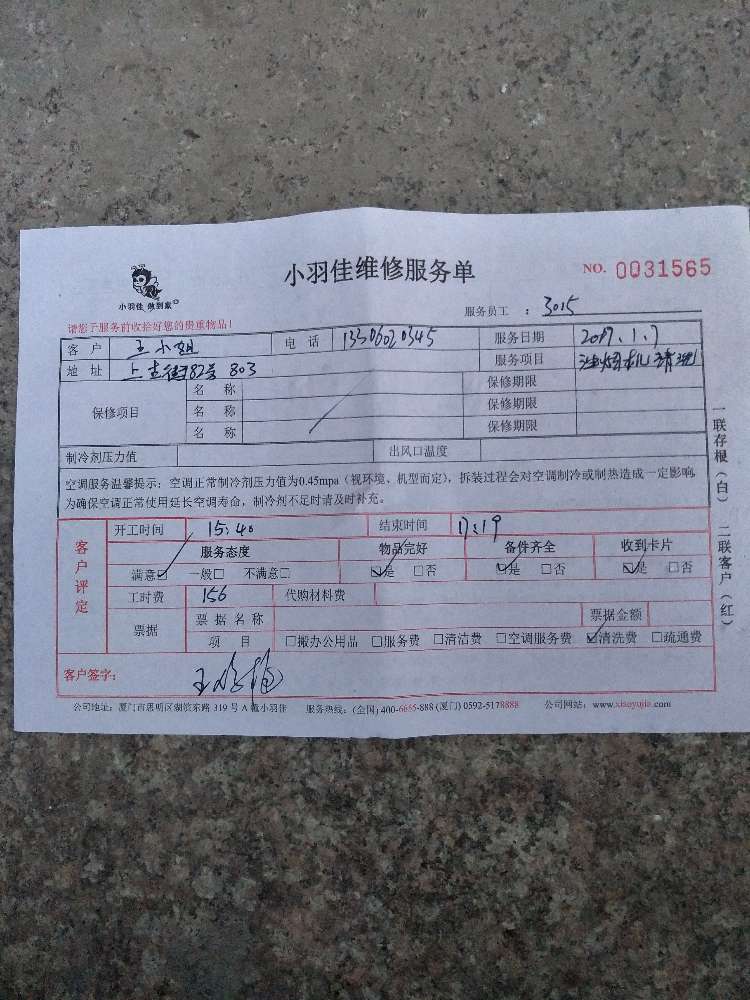 小羽佳维修服务单
NO. 0031565
小羽佳 做到家
服务员工 : 3015
请您于服务前收拾好您的贵重物品!
客户 王小姐 电话 13306020345 服务日期 2017.1.7
地址 上吉街82号 803 服务项目 油烟机清洗
保修项目 名称 保修期限
名称 保修期限
名称 保修期限
制冷剂压力值 出风口温度
空调服务温馨提示：空调正常制冷剂压力值为0.45mpa（视环境、机型而定），拆装过程会对空调制冷或制热造成一定影响，
为确保空调正常使用延长空调寿命，制冷剂不足时请及时补充。
客户评定
开工时间 15:40 结束时间 17:19
服务态度 物品完好 备件齐全 收到卡片
满意☑ 一般□ 不满意□ ☑是 □否 ☑是 □否 ☑是 □否
工时费 156 代购材料费
票据 票据名称 票据金额
项目 □搬办公用品 □服务费 □清洁费 □空调服务费 ☑清洗费 □疏通费
客户签字：
公司地址：厦门市思明区湖滨东路 319 号 A 幢小羽佳 服务热线：(全国) 400-6655-888 (厦门) 0592-5178888 公司网站：www.xiaoyujia.com
一联存根（白） 二联客户（红）